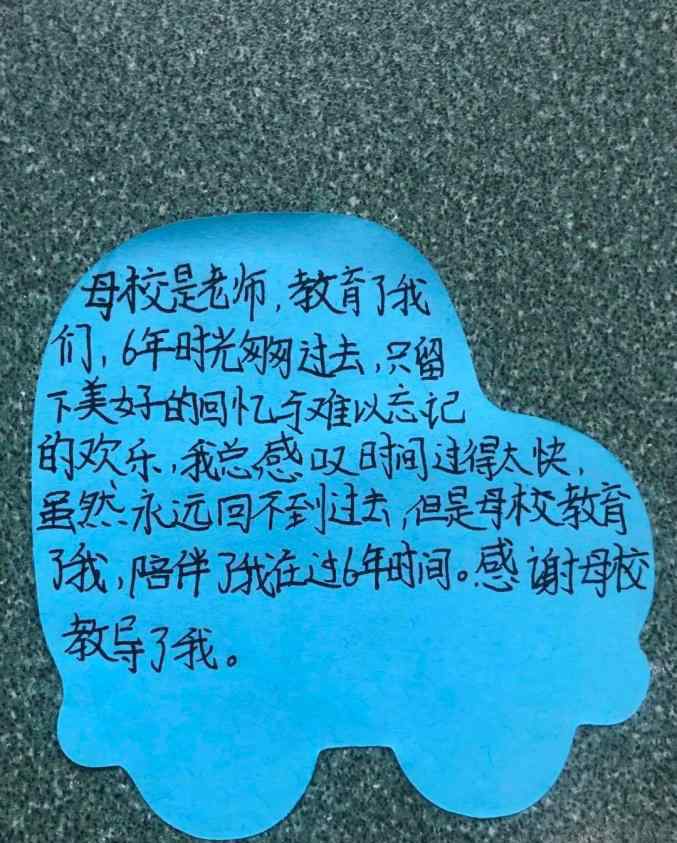 母校是老师，教育了我
们，6年时光匆匆过去，只留
下美好的回忆与难以忘记
的欢乐，我总感叹时间过得太快，
虽然永远回不到过去，但是母校教育
了我，陪伴了我在过6年时间。感谢母校
教导了我。